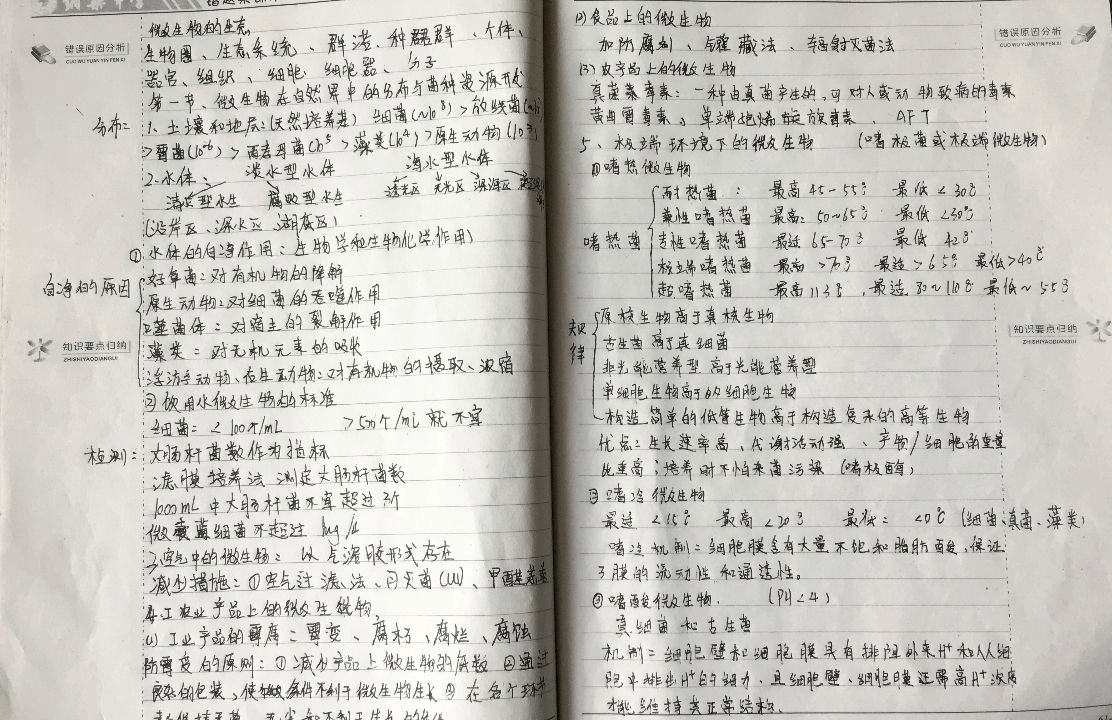 错误原因分析
CUO WU YUAN YIN FEN XI
知识要点归纳
ZHISHIYAODIANGUI
微生物的生态
生物圈、生态系统、群落、种群、个体、
器官、组织、细胞、细胞器、分子
第一节、微生物在自然界中的分布与菌种资源开发
分布:
1、土壤和地层:(天然培养基) 细菌(~10⁸)>放线菌
>霉菌(10⁶)>酵母菌(10⁵>藻类(10⁴)>原生动物(10³)
2.水体: 淡水型水体 海水型水体
清洁型水生 腐败型水生 透光区 无光区 深海区
(沿岸区、深水区、湖底区)
①水体的自净作用:生物学和生物化学作用)
自净的原因
好氧菌:对有机物的降解
原生动物:对细菌的吞噬作用
噬菌体:对宿主的裂解作用
藻类:对无机元素的吸收
浮游动物、原生动物:对有机物的摄取、浓缩
②饮用水微生物的标准
细菌:<100个/mL >500个/mL就不宜
检测:
大肠杆菌数作为指标
滤膜培养法 测定大肠杆菌数
1000mL中大肠杆菌不宜超过3个
微囊藻细菌不超过 1ug/L
3.空气中的微生物:以气溶胶形式存在
减少措施:①空气过滤法、灭菌(UV)、甲醛
4.工农业产品上的微生物
(1)工业产品的霉腐:霉变、腐朽、腐烂、腐蚀
防霉腐的原则:①减少产品上微生物的 数 ②通过
的包装,使 条件不利于微生物生长③在各个环节
错误原因分析
CUO WU YUAN YIN FEN XI
知识要点归纳
ZHISHIYAODIANGUI
(2)食品上的微生物
加防腐剂、罐藏法、辐射灭菌法
(3)农产品上的微生物
真菌毒素:一种由真菌产生的,可对人或动物致病的毒素
黄曲霉毒素、单端孢烯族毒素、AFT
5、极端环境下的微生物 (嗜极菌或极端微生物)
①嗜热微生物
嗜热菌
耐热菌: 最高45-55° 最低<30°
兼性嗜热菌 最高:50~65° 最低<30°
专性嗜热菌 最适65-70° 最低 42°
极端嗜热菌 最高>70° 最适>65° 最低>40°
超嗜热菌 最高113°,最适80~110° 最低~55°
规律
原核生物高于真核生物
古生菌高于真细菌
非光能营养型高于光能营养型
单细胞生物高于多细胞生物
构造简单的低等生物高于构造复杂的高等生物
优点:生长速率高、代谢活动强、产物/细胞的重量
比重高;培养时不怕杂菌污染(嗜极酶)
②嗜冷微生物
最适<15° 最高<20° 最低:<0°(细菌、真菌、藻类)
嗜冷机制:细胞膜含有大量不饱和脂肪酸,保证
了膜的流动性和通透性。
③嗜酸微生物. (PH<4)
真细菌和古生菌
机制:细胞壁和细胞膜具有排阻外来H⁺和从细
胞中排出H⁺的能力,且细胞壁、细胞膜还需高H⁺浓度
才能维持其正常结构.